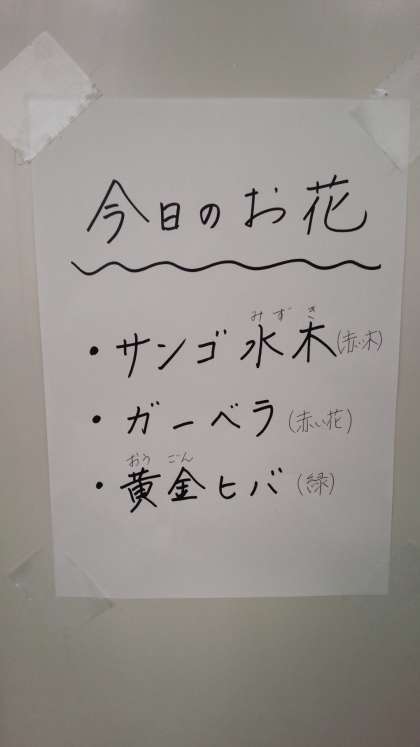 今日のお花
みずき
・サンゴ水木(赤い木)
・ガーベラ(赤い花)
おうごん
・黄金ヒバ(緑)